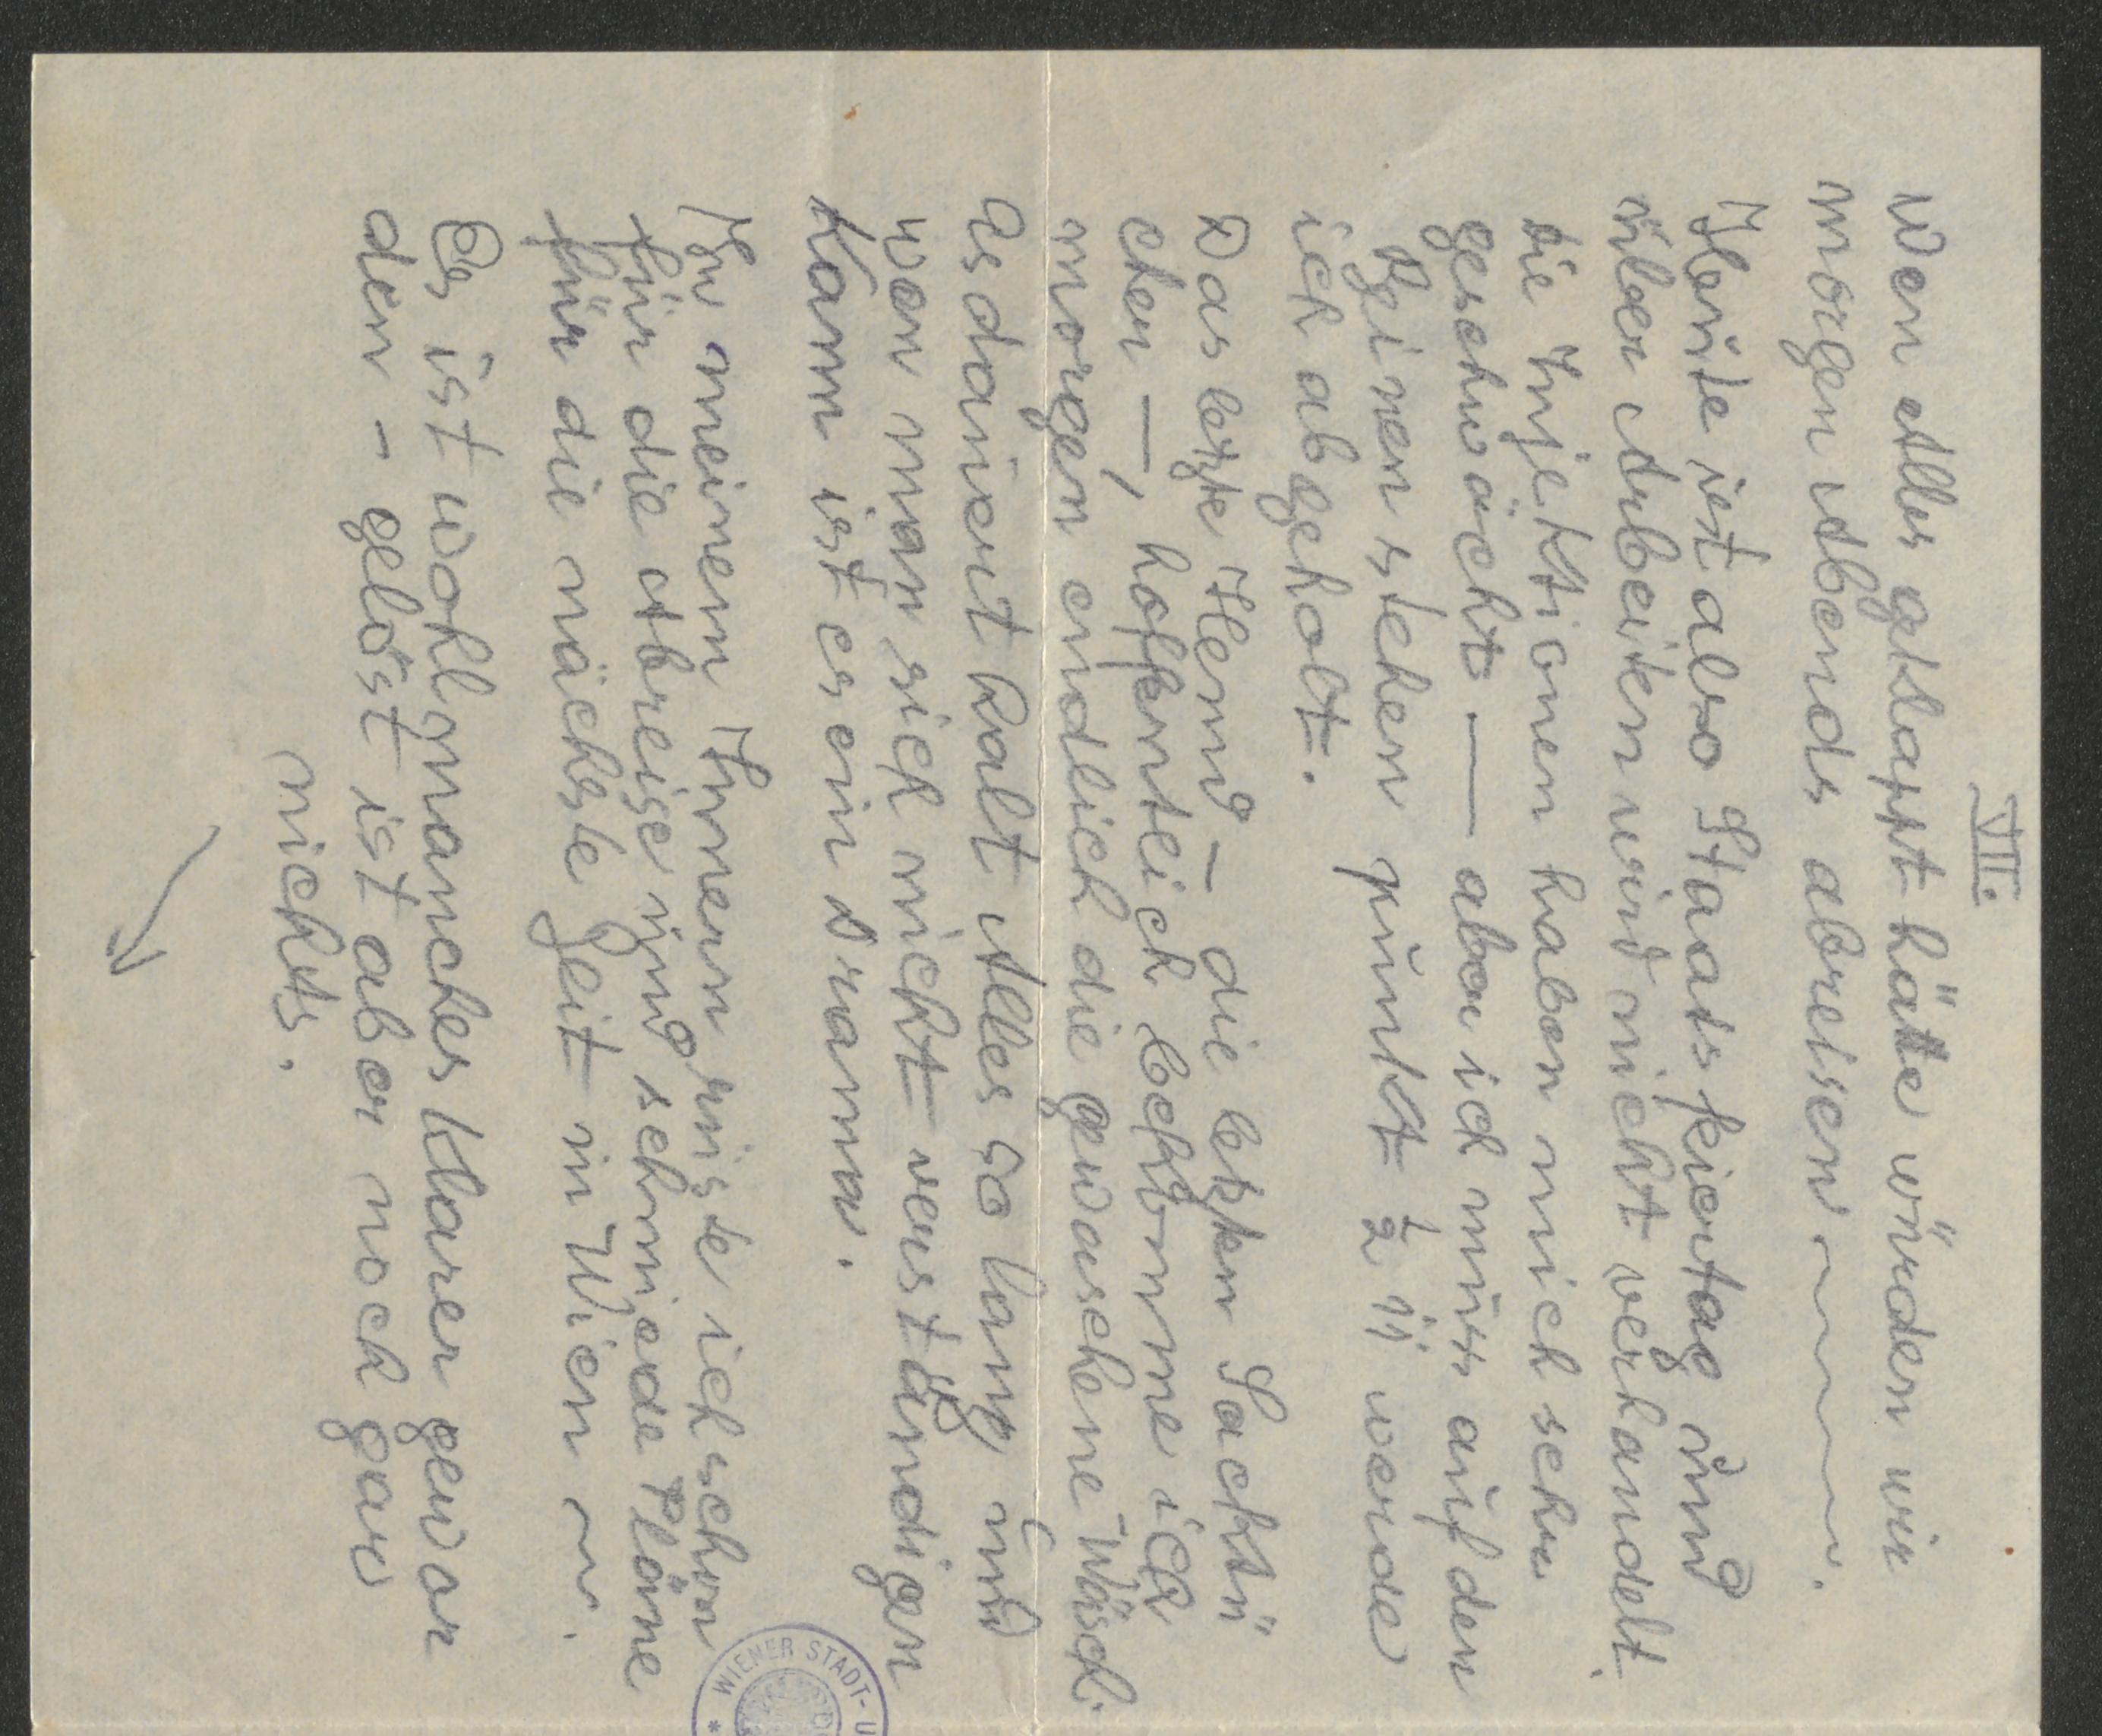 VII.
Wen Alles geklappt hätte würden wir
morgen Abends abreisen
Heute ist also Staatsfeiertag und
über Arbeiten wird nicht verhandelt.
die Injektionen haben mich sehr
geschwächt — aber ich muss auf den
Beinen stehen punkt ½ 11 werde
ich abgeholt.
Das letzte Hemd – die letzten Sacktü
cher —, hoffentlich bekomme ich
morgen endlich die gewaschene Wäsch.
Es dauert halt Alles so lang und
wen man sich nicht verständigen
kann ist es ein Drama.
In meinem Innern rüste ich schon
für die Abreise und schmiede Pläne
für die nächste Zeit in Wien
Es ist wohl manches klarer gewor
den – gelöst ist aber noch gar
nichts.
WIENER STADT- U